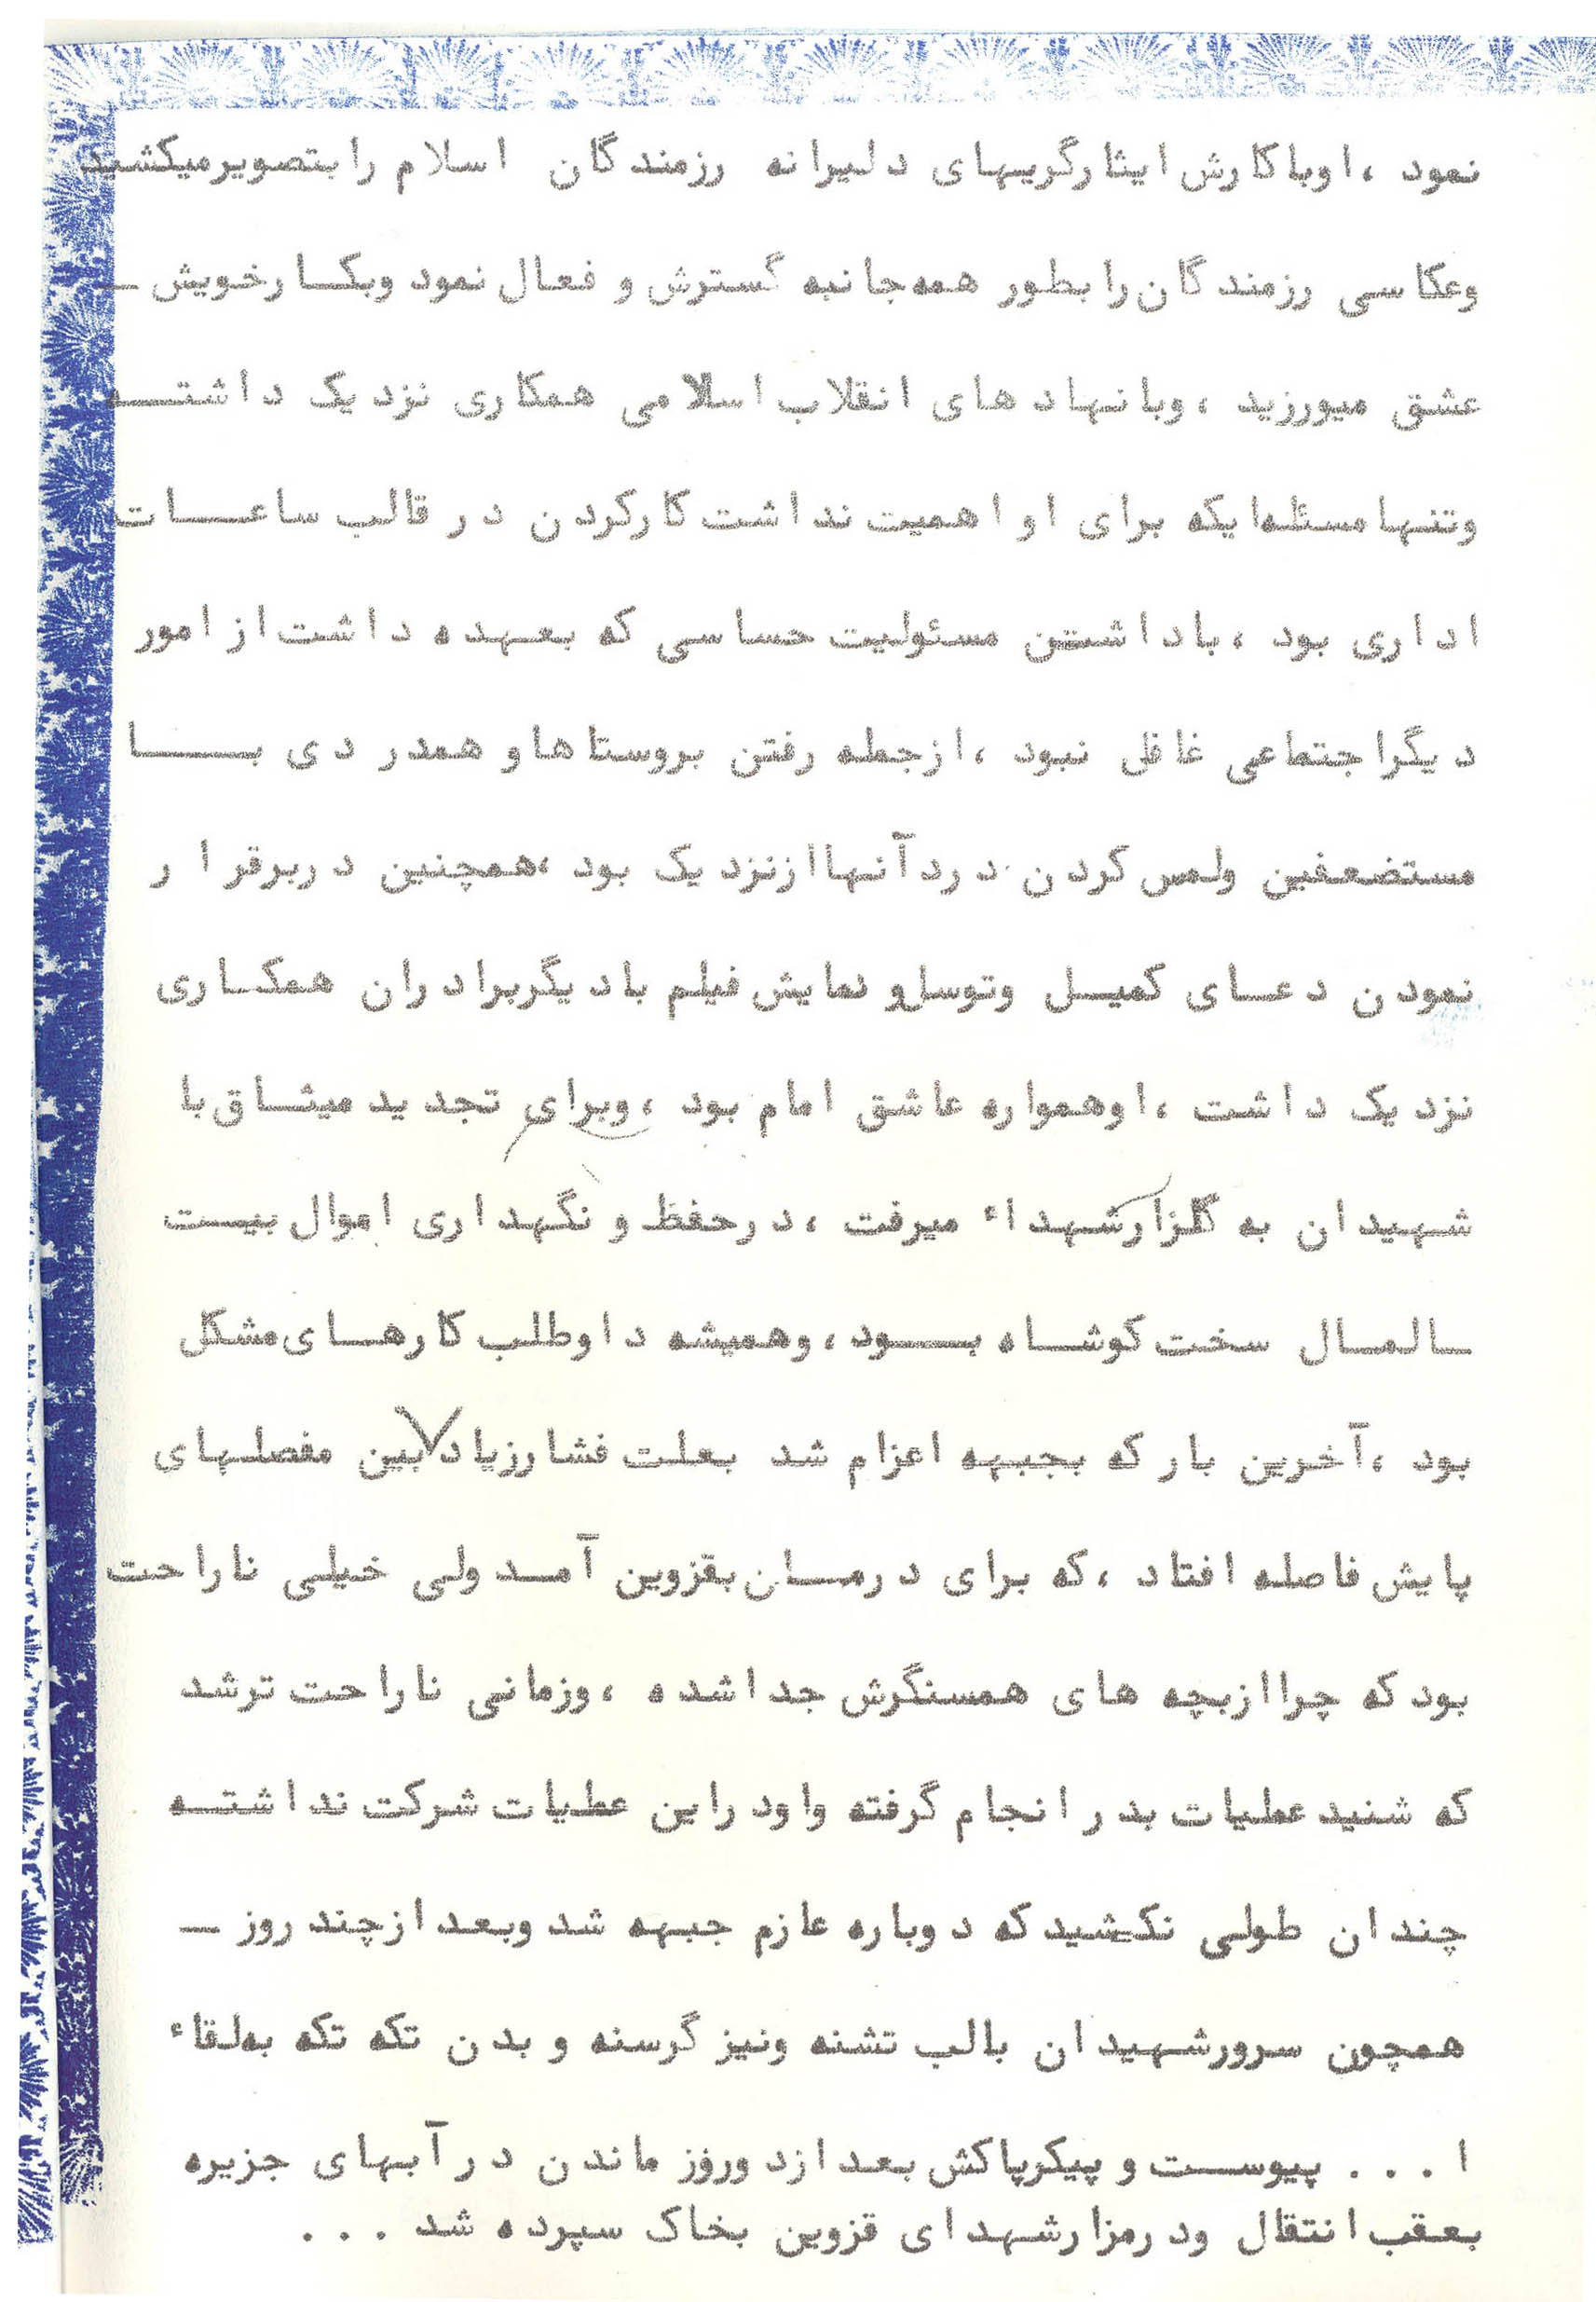 نمود ،اوباکارش ایثارگریهای دلیرانه رزمندگان اسلام رابتصویرمیکشید
وعکاسی رزمندگان رابطور همه‌جانبه گسترش و فعال نمود وبکـارخویش ـ
عشق میورزید ،وبانهادهای انقلاب اسلامی همکاری نزدیک داشتـه
وتنهامسئله‌ایکه برای او اهمیت نداشت کارکردن در قالب ساعـات
اداری بود ،باداشتن مسئولیت حساسی که بعهده داشت از امور
دیگراجتماعی غافل نبود ،ازجمله رفتن بروستاهاو همدردی بــا
مستضعفین ولمس کردن درد آنهاازنزدیک بود ،همچنین دربرقرار
نمودن دعـای کمیـل وتوسلو نمایش فیلم بادیگربرادران همکـاری
نزدیک داشت ،اوهمواره عاشق امام بود ،وبرای تجدید میثـاق با
شهیدان به گلزارشهداء میرفت ،درحفظ و نگهداری اموال بیـت
ـالمـال سخت کوشـاه بـود،وهمیشه داوطلب کارهـای مشکل
بود ،آخرین بار که بجبهه اعزام شد بعلت فشارزیاد بین مفصلهای
پایش فاصله افتاد ،که برای درمـان بقزوین آمـد ولی خیلی ناراحت
بود که چراازبچه های همسنگرش جداشده ،وزمانی ناراحت ترشد
که شنید عملیات بدر انجام گرفته واودراین عملیات شرکت نداشتـه
چندان طولی نکشید که دوباره عازم جبهه شد وبعدازچند روز ـ
همچون سرورشهیدان بالب تشنه ونیز گرسنه و بدن تکه تکه به‌لقاء
ا . . . پیوسـت و پیکرپاکش بعدازدوروز ماندن در آبهای جزیره
بعقب انتقال ودرمزارشهدای قزوین بخاک سپرده شد . . .